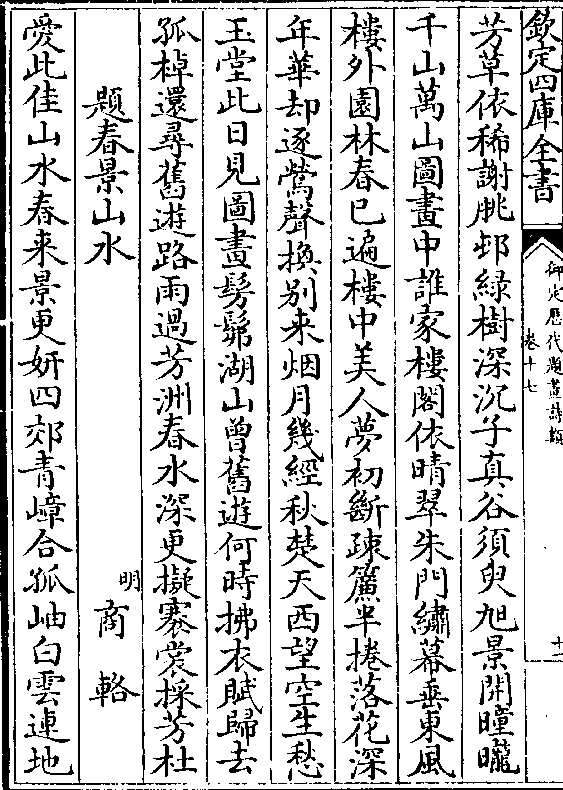 欽定四庫全書
御定歷代題畫詩類
卷十七
十一
芳草依稀謝朓邨綠樹深沉子真谷須臾旭景開曈曨
千山萬山圖畫中誰家樓閣依晴翠朱門繡幕垂東風
樓外園林春已遍樓中美人夢初斷疎簾半捲落花深
年華却逐鶯聲換别来烟月幾經秋楚天西望空生愁
玉堂此日見圖畫髣髴湖山曾舊遊何時拂衣賦歸去
孤棹還尋舊遊路雨過芳洲春水深更擬褰裳採芳杜
題春景山水
明
商輅
愛此佳山水春来景更妍四郊青嶂合孤岫白雲連地